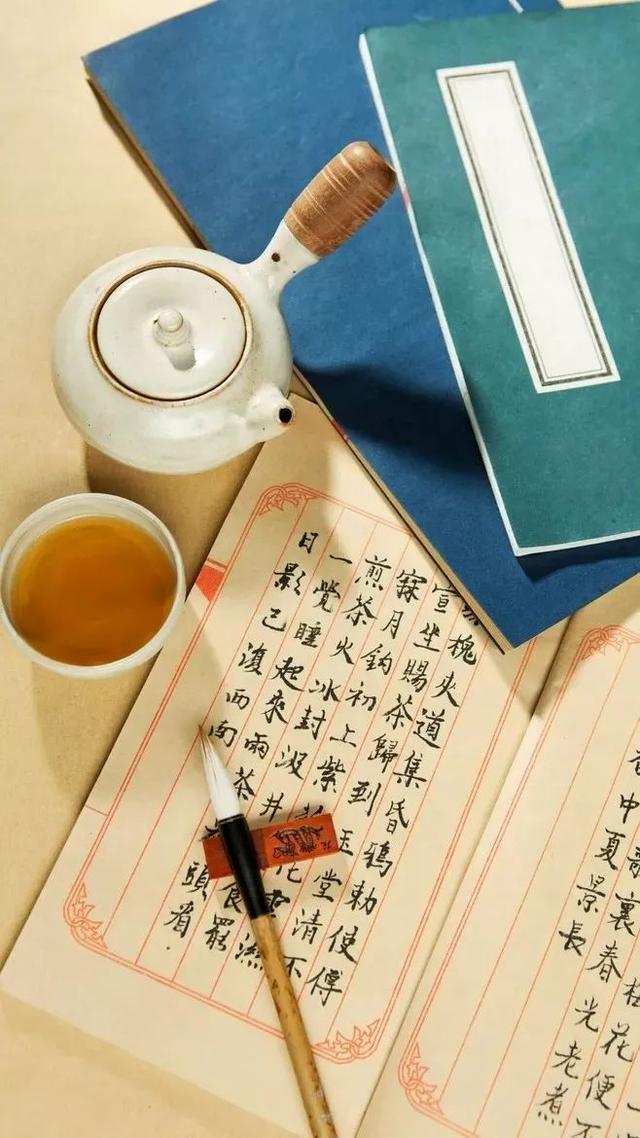 槐夾道集昏鴉勅使傳
宣坐賜茶歸到玉堂清不
寐月鈎初上紫花
煎茶火冰封汲井食罷
一覺睡起來兩茶頭看
日影已復西
花便不
裏春光老煮
中夏景長